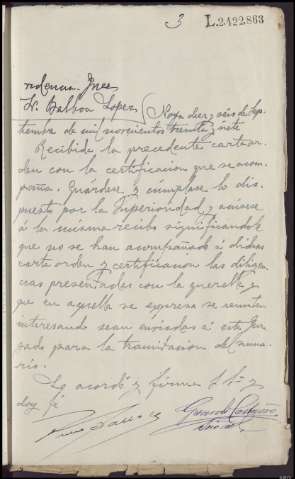 3 L.2422863
Providencia. Juez
Sr. Balboa Lopez. Noya diez y seis de Sep-
tiembre de mil novecientos treinta y siete
Recibida la precedente carta or-
den con la certificacion que se acom-
paña. Guárdese y cúmplase lo dis-
puesto por la Superioridad, y acúsese
á la misma recibo significandole
que no se han acompañado á dichas
carta orden y certificacion las diligen-
cias presentadas con la querella y
que en aquella se expresa se remiten
interesando sean enviadas á este Juz-
gado para la tramitacion del suma-
rio.
Lo acordó y firma S. Sª. y
doy fé